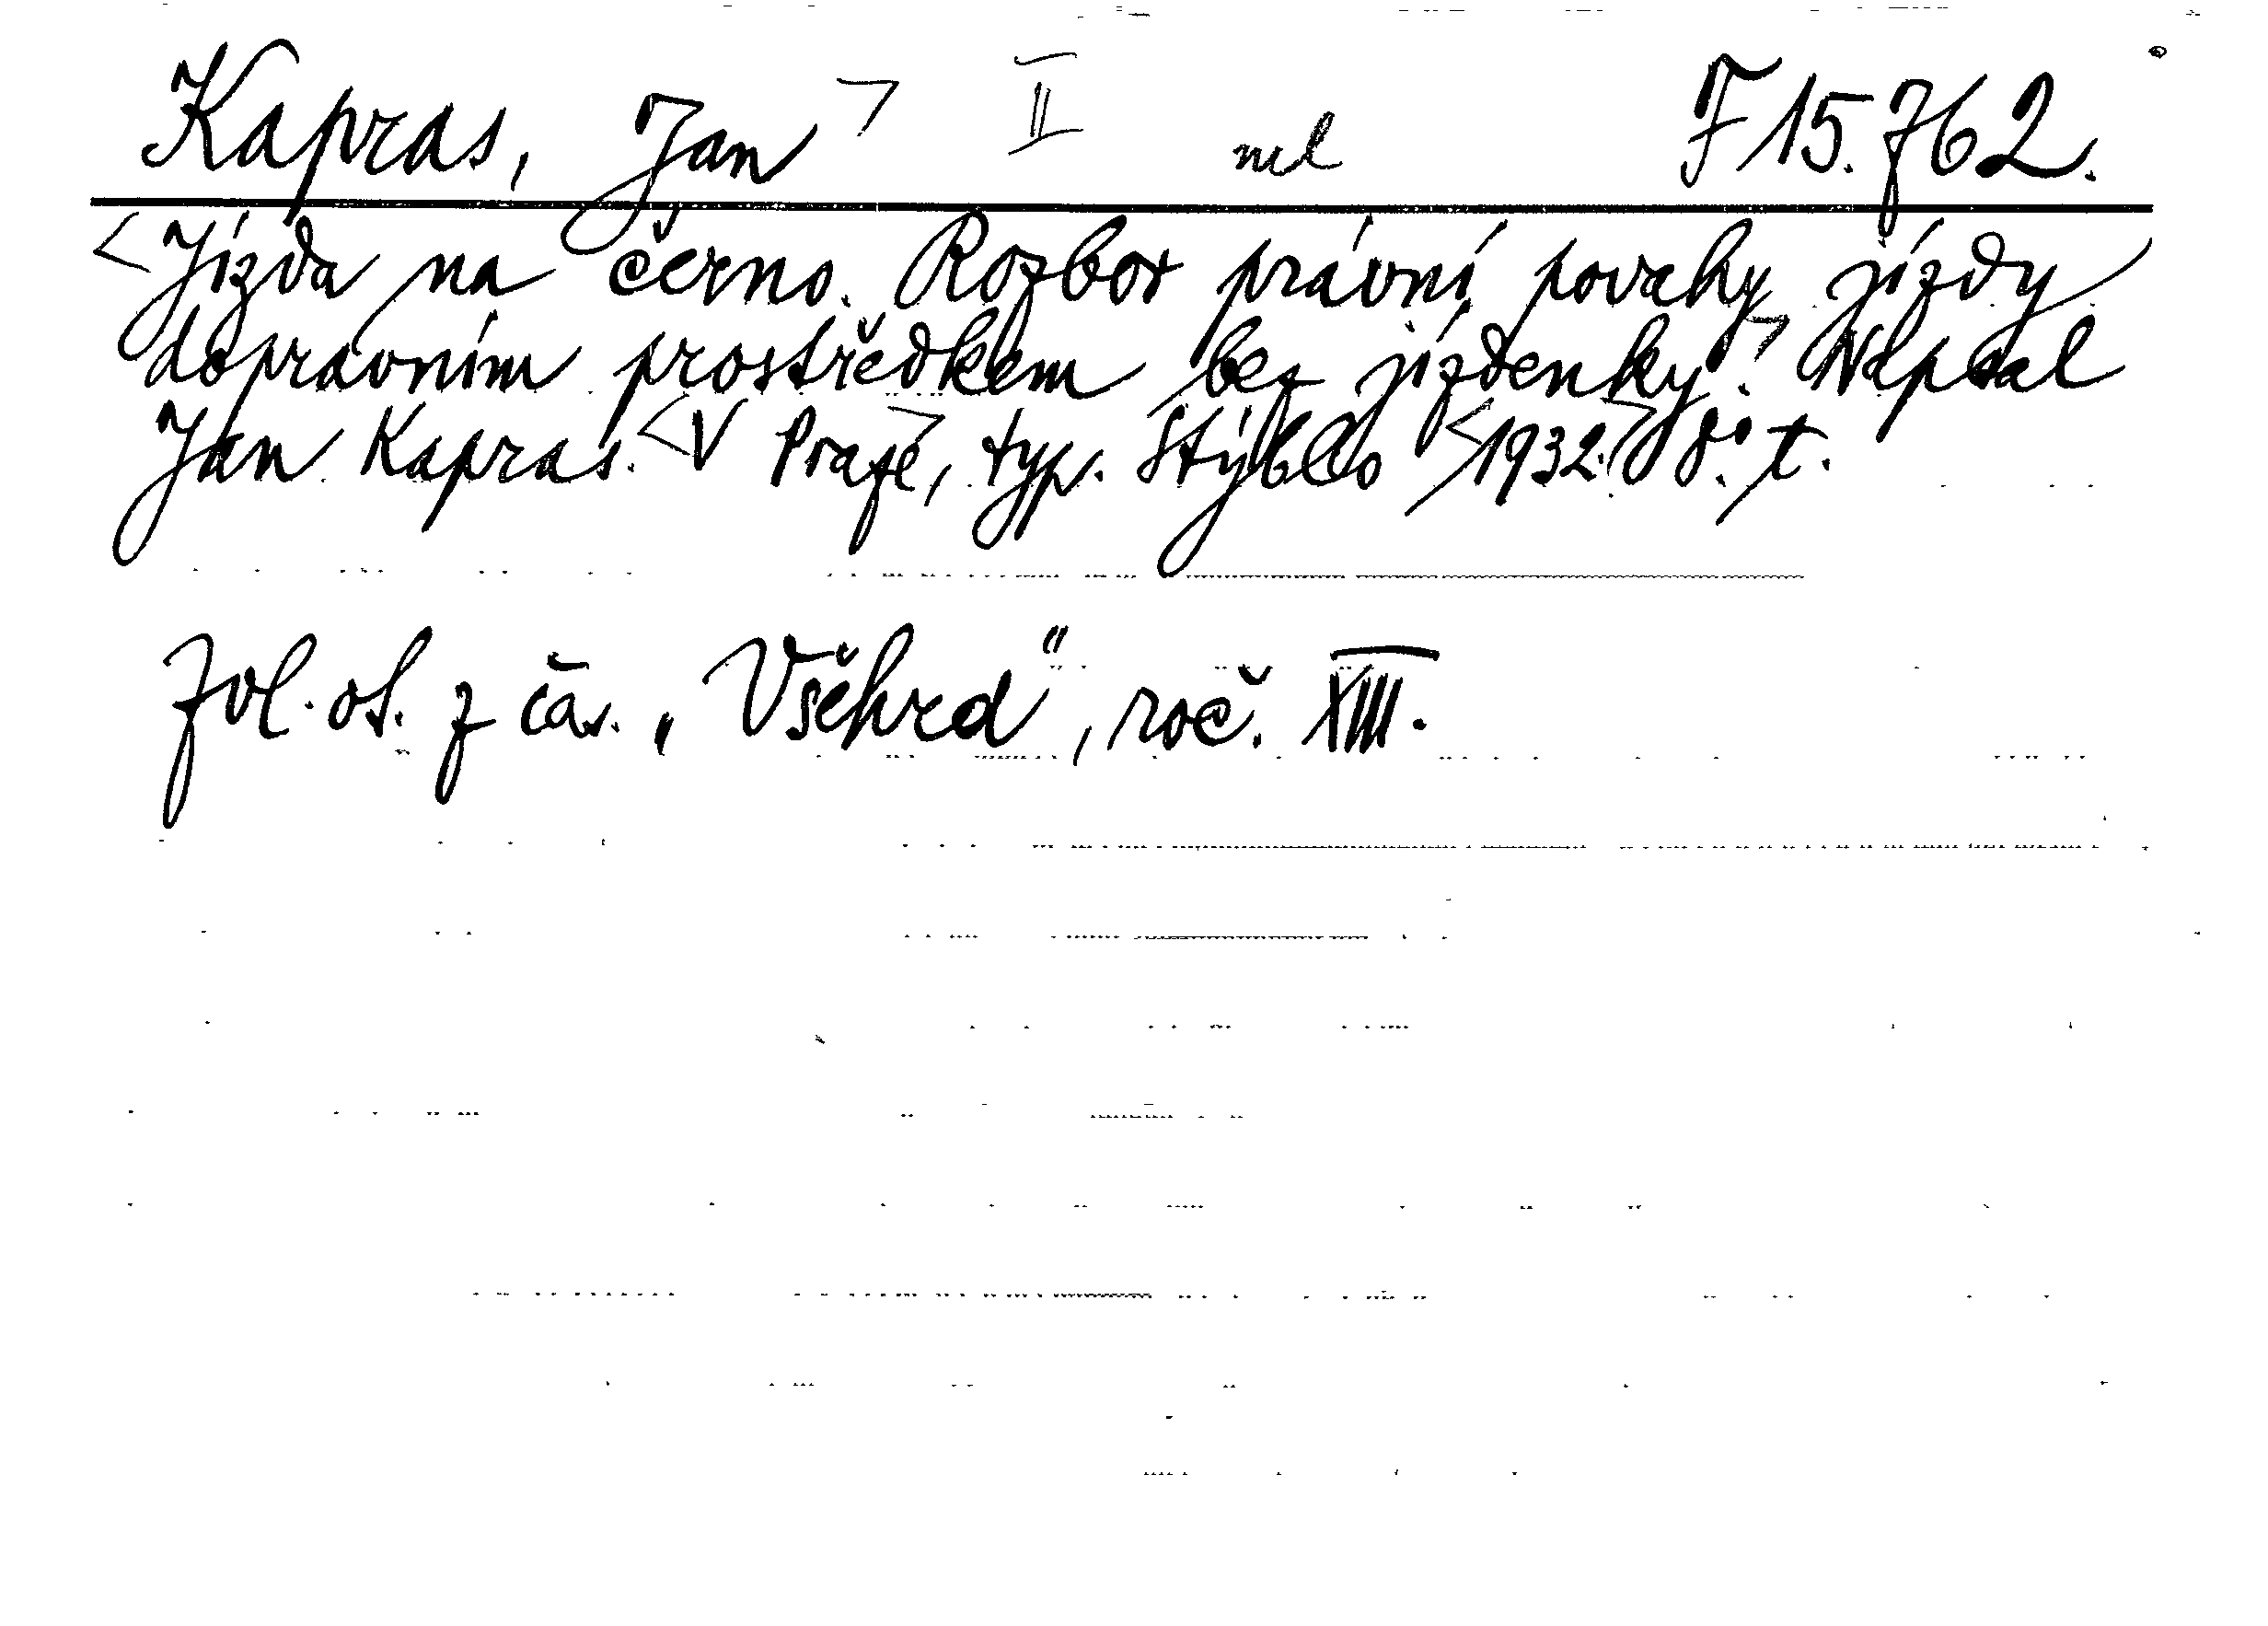 Kapras, Jan II F 15.762.
Jízda na černo. Rozbor právní povahy jízdy
dopravním prostředkem bez jízdenky. Napsal
Jan Kapras. V Praze, typ. Stýblo 1932. 8°. t.
Zvl. ot. z čas. „Všehrd", roč. XIII.